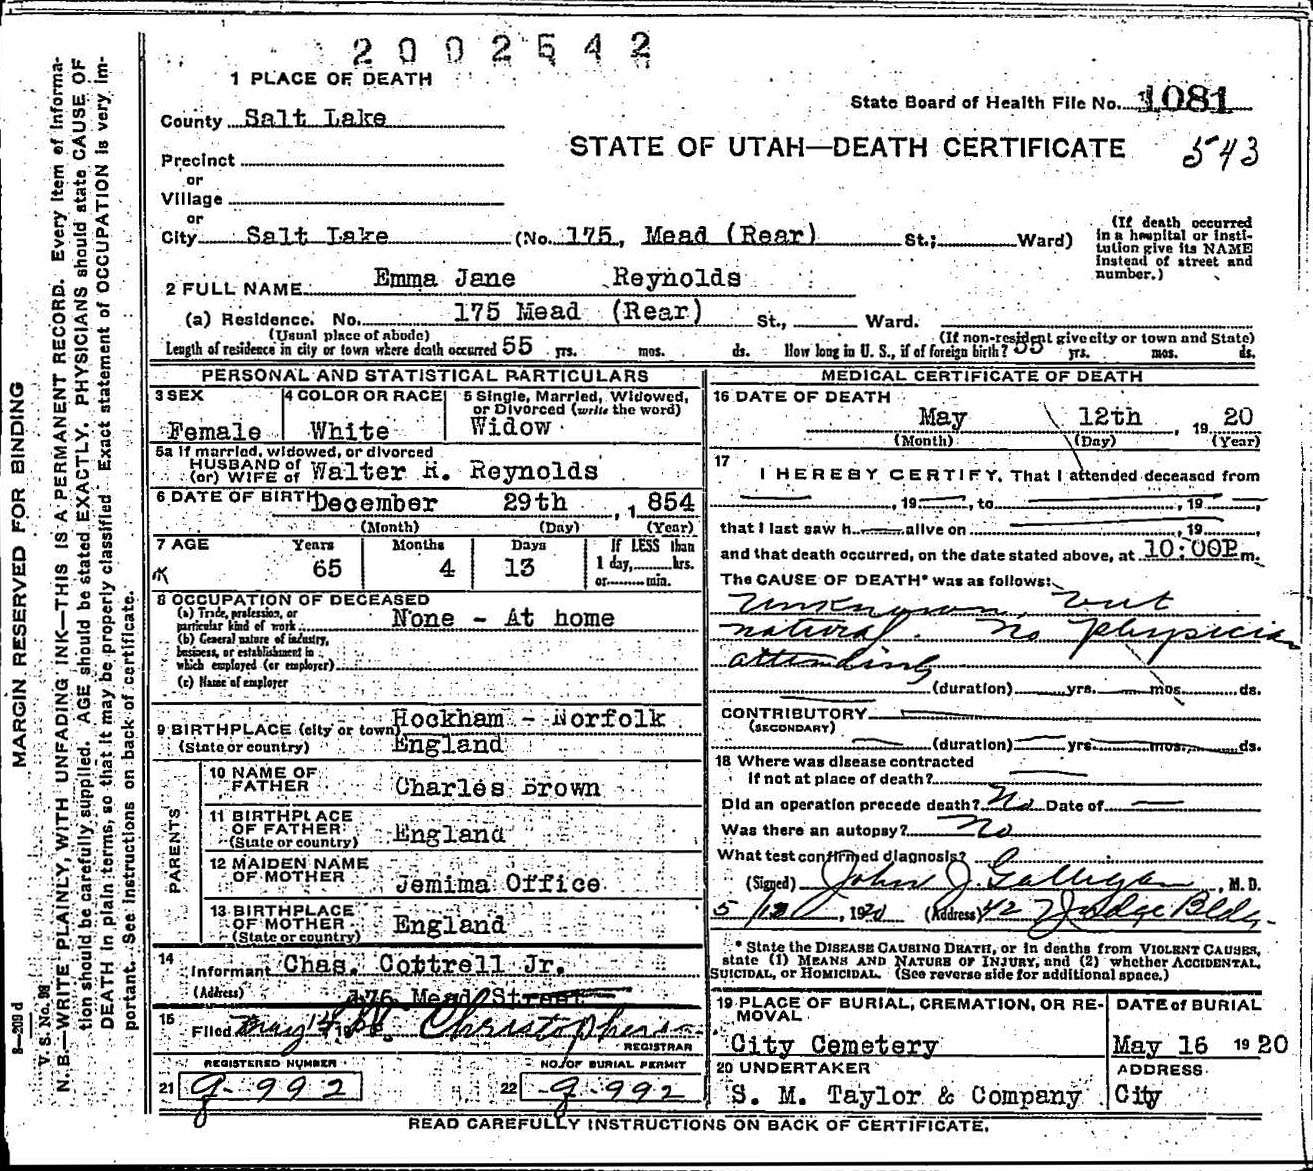 2002542
1 PLACE OF DEATH
State Board of Health File No. 1081
County Salt Lake
STATE OF UTAH—DEATH CERTIFICATE 543
Precinct
or
Village
or
City Salt Lake (No. 175, Mead (Rear) St.; Ward)
(If death occurred
in a hospital or insti-
tution give its NAME
instead of street and
number.)
2 FULL NAME Emma Jane Reynolds
(a) Residence. No. 175 Mead (Rear) St., Ward.
(Usual place of abode) (If non-resident give city or town and State)
Length of residence in city or town where death occurred 55 yrs. mos. ds. How long in U. S., if of foreign birth? 55 yrs. mos. ds.
PERSONAL AND STATISTICAL PARTICULARS
3 SEX
Female
4 COLOR OR RACE
White
5 Single, Married, Widowed,
or Divorced (write the word)
Widow
5a If married, widowed, or divorced
HUSBAND of
(or) WIFE of Walter R. Reynolds
6 DATE OF BIRTH December 29th, 1854
(Month) (Day) (Year)
7 AGE Years Months Days If LESS than
65 4 13 1 day, hrs.
or min.
8 OCCUPATION OF DECEASED
(a) Trade, profession, or
particular kind of work None - At home
(b) General nature of industry,
business, or establishment in
which employed (or employer)
(c) Name of employer
9 BIRTHPLACE (city or town) Hockham - Norfolk
(State or country) England
PARENTS
10 NAME OF
FATHER Charles Brown
11 BIRTHPLACE
OF FATHER England
(State or country)
12 MAIDEN NAME
OF MOTHER Jemima Office
13 BIRTHPLACE
OF MOTHER England
(State or country)
14
Informant Chas. Cottrell Jr.
(Address) 175 Mead Street
15
Filed May 14, 19 Christopherson
REGISTRAR
REGISTERED NUMBER
21 g-992
NO. OF BURIAL PERMIT
22 g-992
MEDICAL CERTIFICATE OF DEATH
16 DATE OF DEATH
May 12th, 1920
(Month) (Day) (Year)
17
I HEREBY CERTIFY, That I attended deceased from
, 19 , to , 19 ,
that I last saw h alive on , 19 ,
and that death occurred, on the date stated above, at 10:00P m.
The CAUSE OF DEATH* was as follows:
Unknown, but
natural. No physician
attending
(duration) yrs. mos. ds.
CONTRIBUTORY
(SECONDARY)
(duration) yrs. mos. ds.
18 Where was disease contracted
if not at place of death?
Did an operation precede death? No Date of —
Was there an autopsy? No
What test confirmed diagnosis?
(Signed) John J. Galligan, M. D.
5/12, 1920 (Address) 42 Judge Bldg.
* State the DISEASE CAUSING DEATH, or in deaths from VIOLENT CAUSES,
state (1) MEANS AND NATURE OF INJURY, and (2) whether ACCIDENTAL,
SUICIDAL, or HOMICIDAL. (See reverse side for additional space.)
19 PLACE OF BURIAL, CREMATION, OR RE-
MOVAL
City Cemetery
DATE of BURIAL
May 16 1920
20 UNDERTAKER
S. M. Taylor & Company
ADDRESS
City
READ CAREFULLY INSTRUCTIONS ON BACK OF CERTIFICATE.
MARGIN RESERVED FOR BINDING
8—209 d
V. S. No. 98
N. B.—WRITE PLAINLY, WITH UNFADING INK—THIS IS A PERMANENT RECORD. Every item of informa-
tion should be carefully supplied. AGE should be stated EXACTLY. PHYSICIANS should state CAUSE OF
DEATH in plain terms, so that it may be properly classified. Exact statement of OCCUPATION is very im-
portant. See instructions on back of certificate.